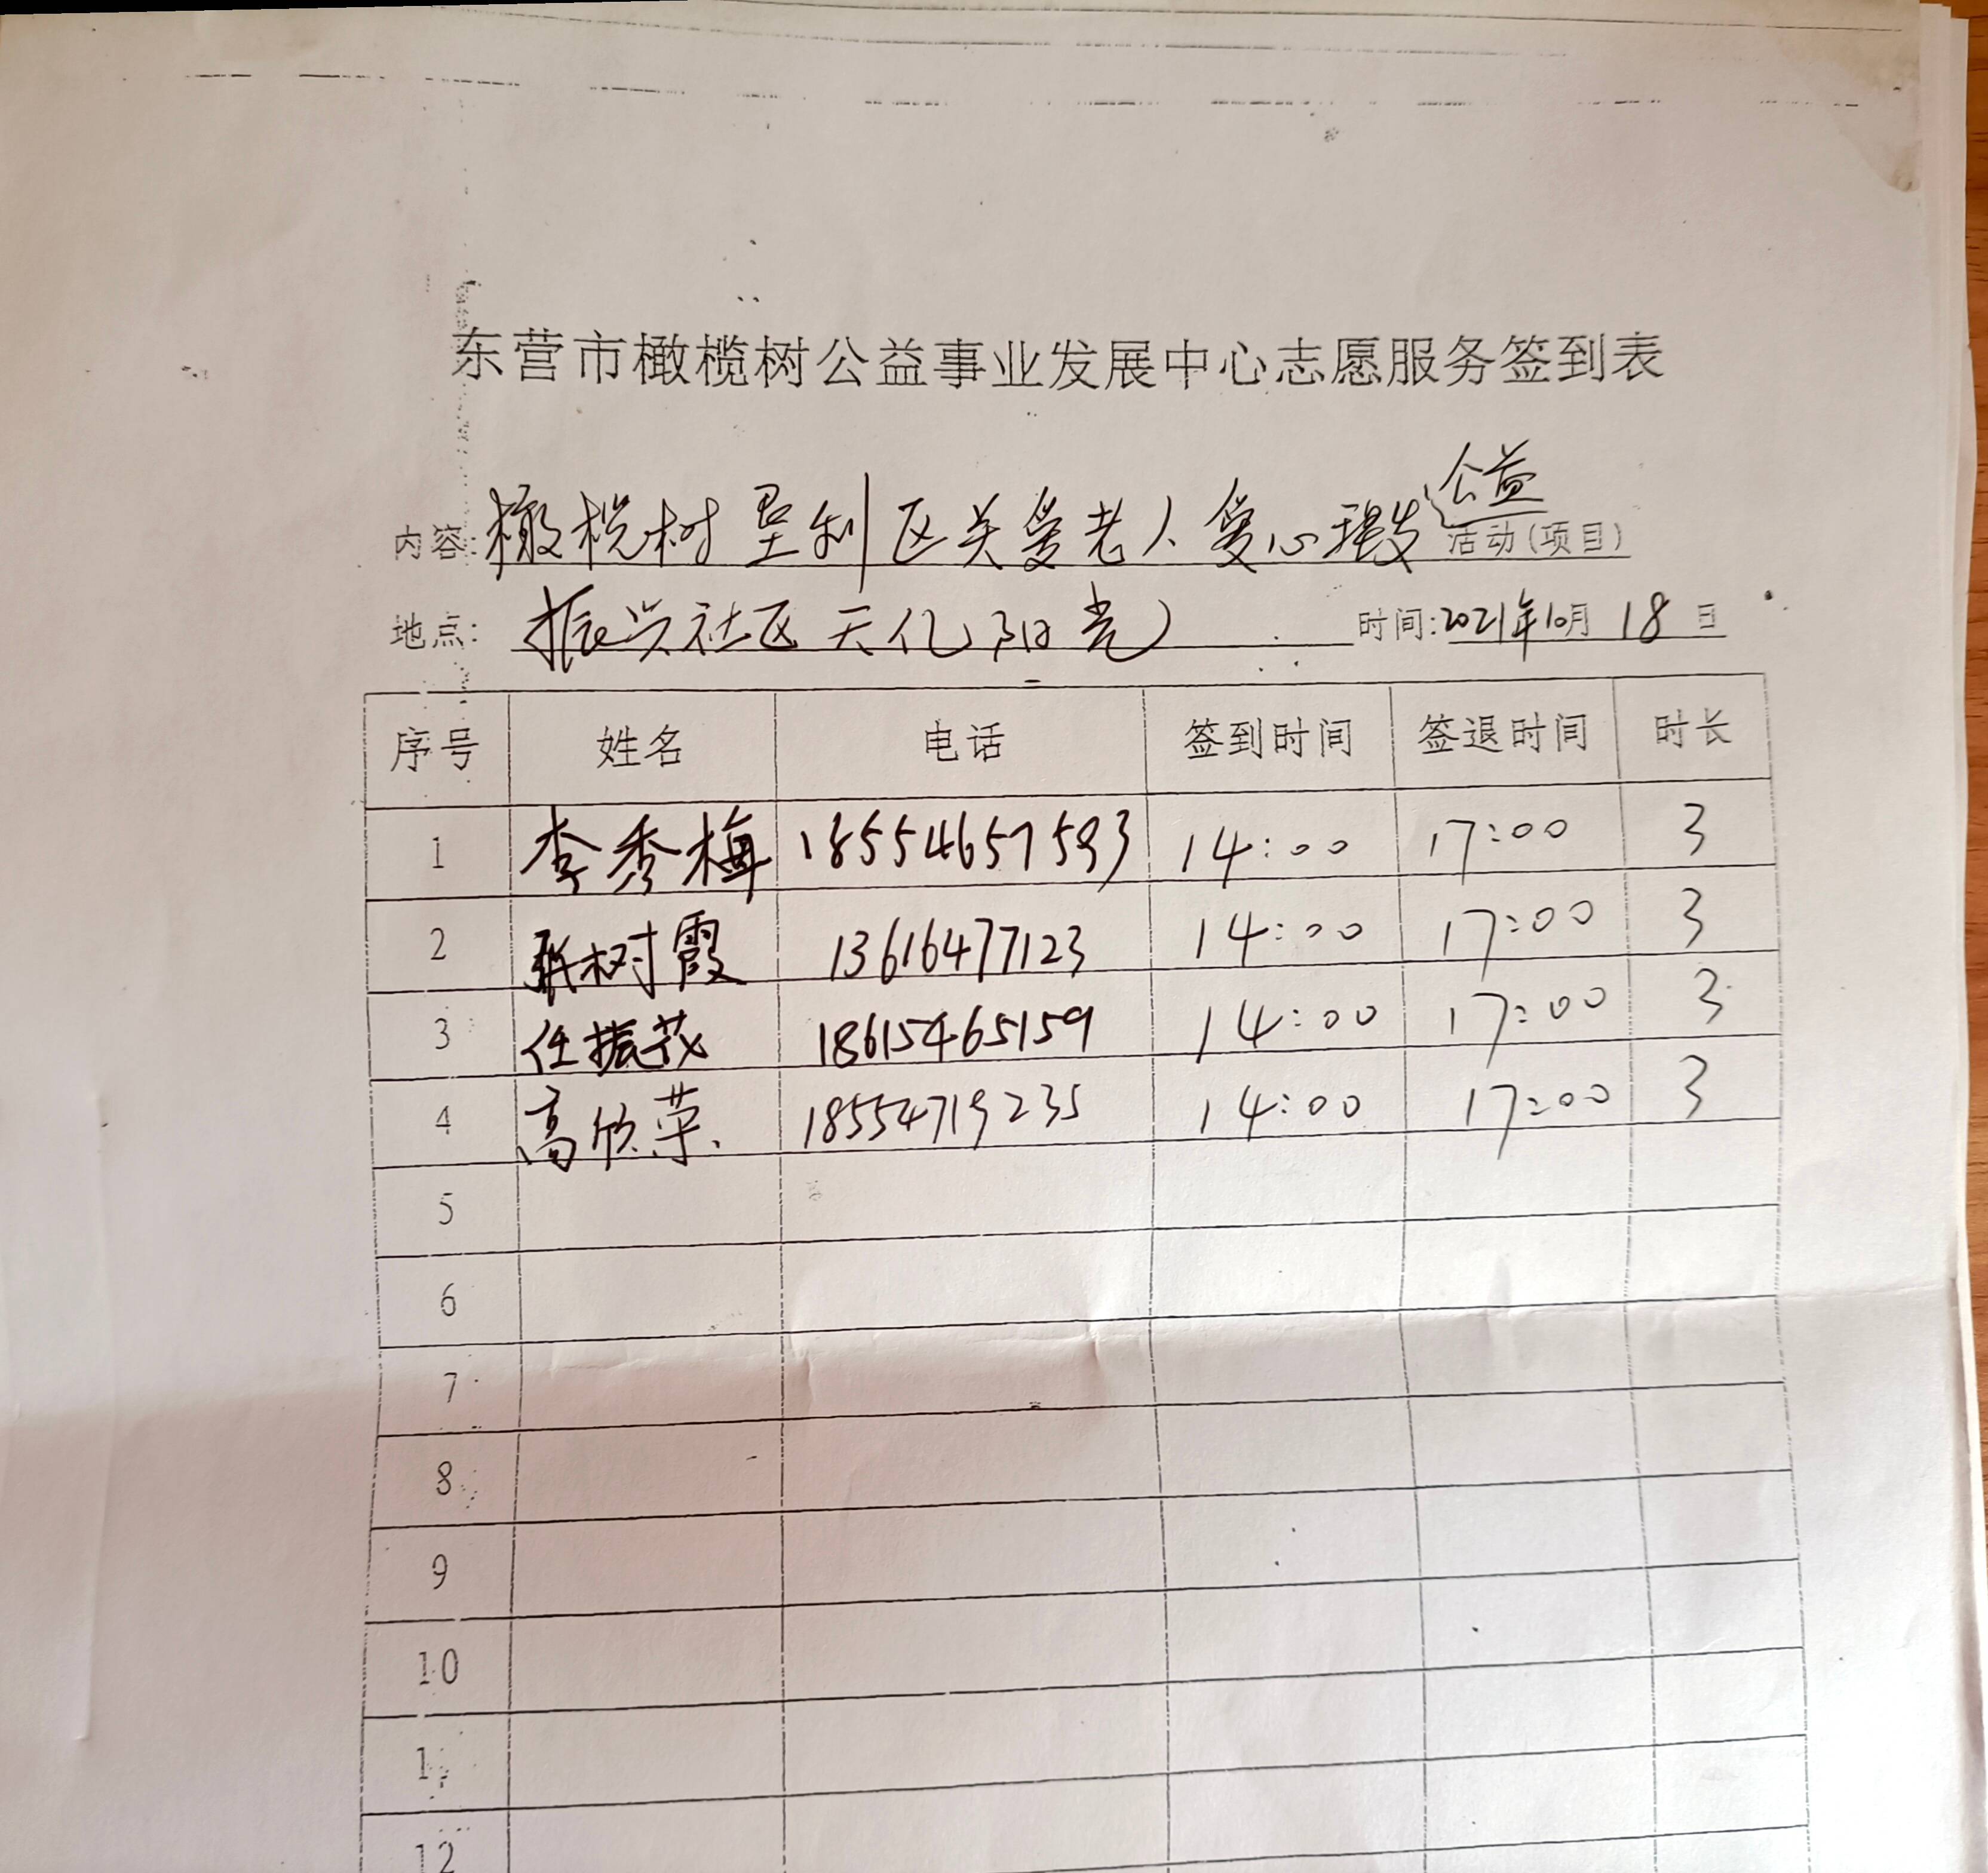 东营市橄榄树公益事业发展中心志愿服务签到表
内容:橄榄树垦利区关爱老人爱心理发公益活动(项目)
地点:振兴社区天亿阳光 时间:2021年10月18日
序号 姓名 电话 签到时间 签退时间 时长
1 李秀梅 18554657593 14:00 17:00 3
2 张树霞 13616477123 14:00 17:00 3
3 任振茂 18615465159 14:00 17:00 3
4 高欣荣 18554719235 14:00 17:00 3
5
6
7
8
9
10
12